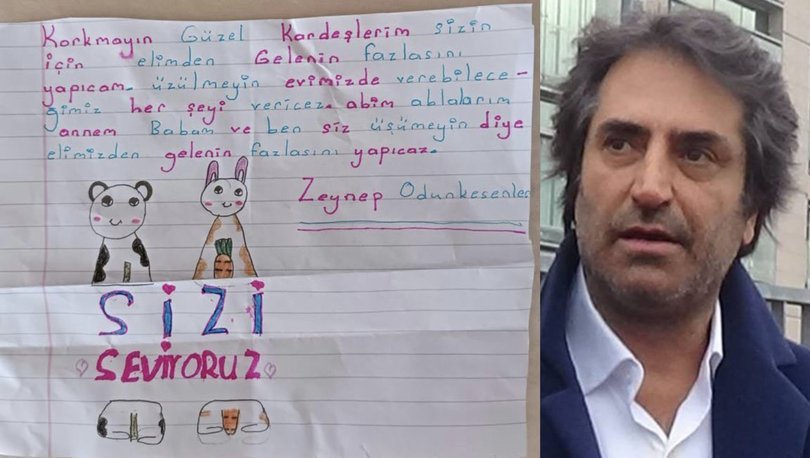 Korkmayın Güzel Kardeşlerim sizin
için elimden Gelenin fazlasını
yapıcam. üzülmeyin evimizde verebilece-
ğimiz her şeyi vericez. abim ablalarım
annem Babam ve ben siz üşümeyin diye
elimizden gelenin fazlasını yapıcaz.
Zeynep Odunkesenler
SİZİ
SEVİYORUZ